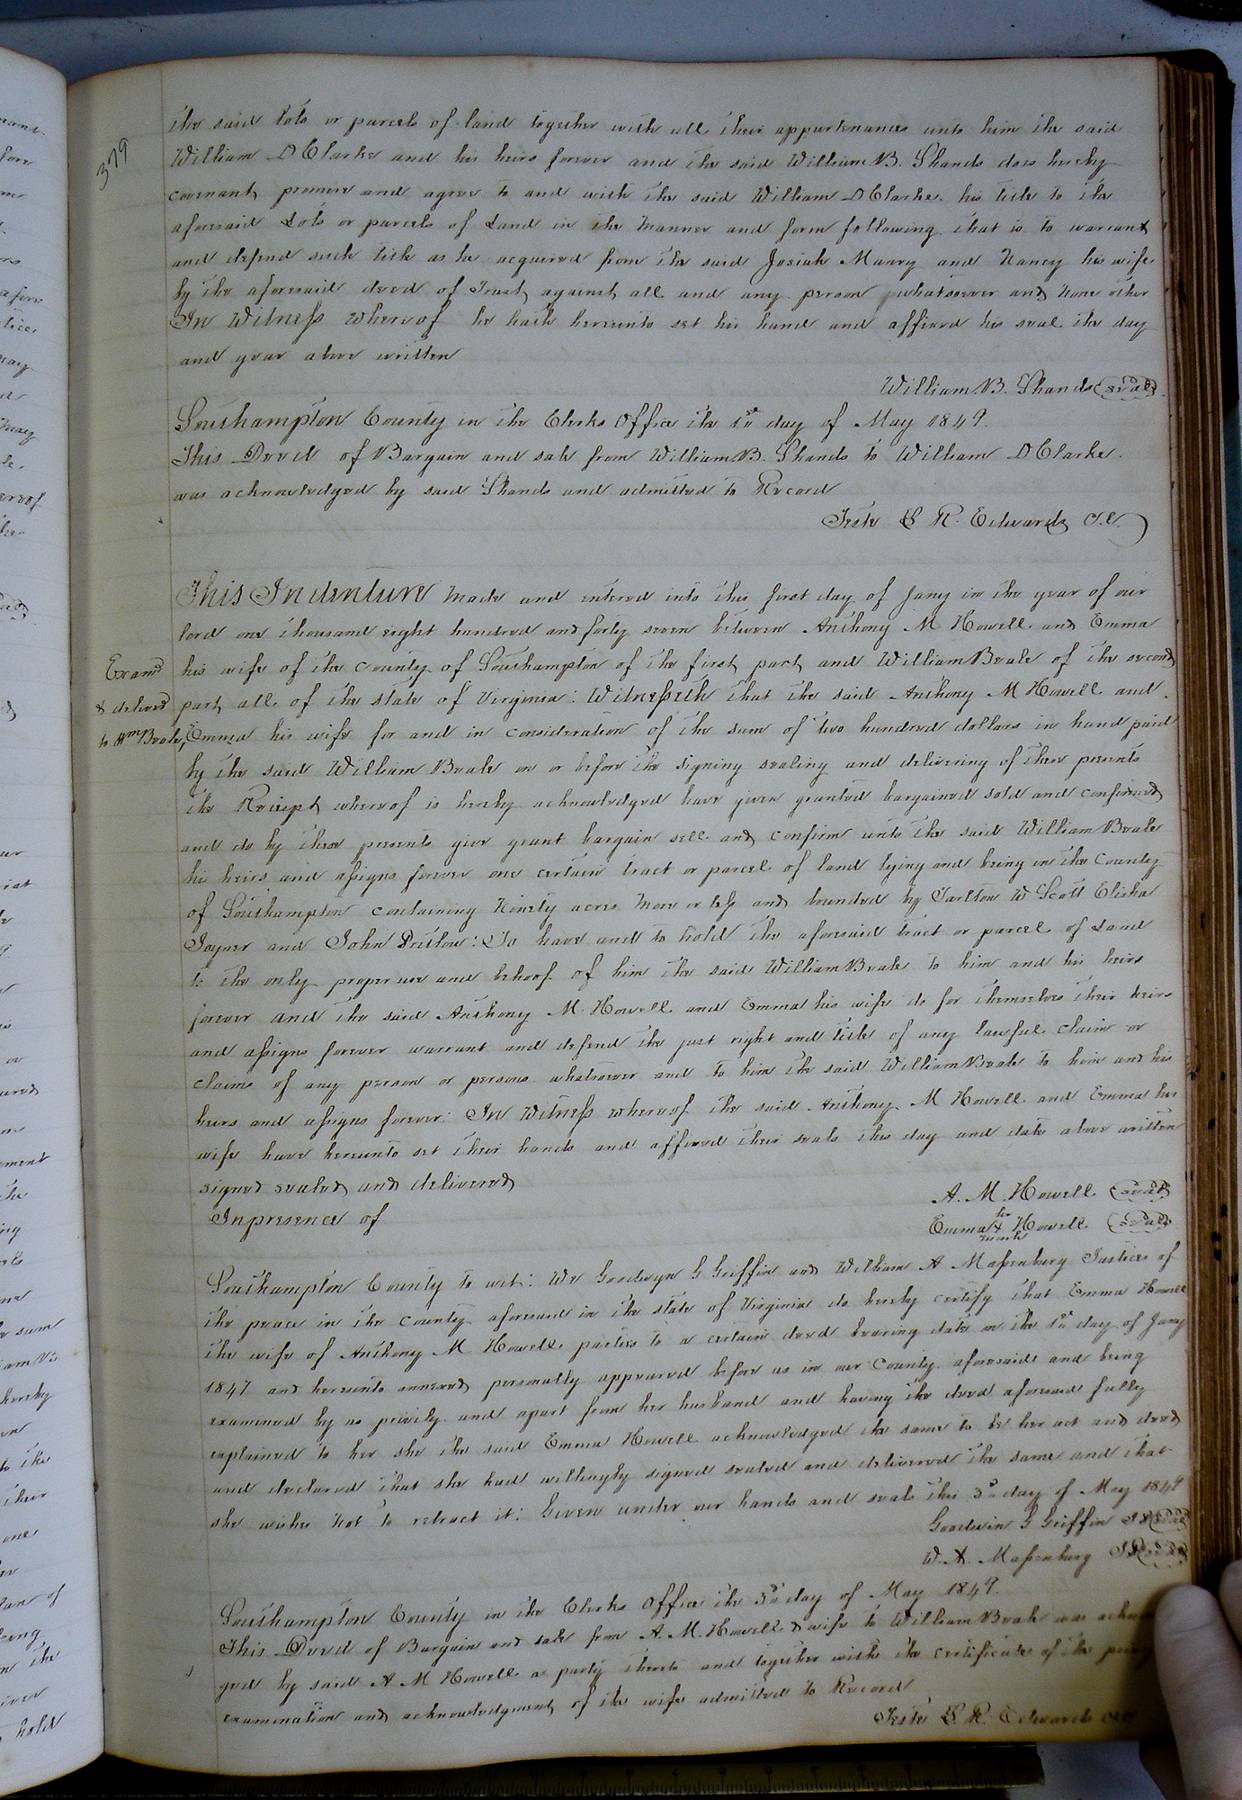 379
the said lots or parcels of land together with all their appurtenances unto him the said
William D Clarke and his heirs forever and the said William B. Shands does hereby
covenant, promise and agree to and with the said William D Clarke, his title to the
aforesaid Lots or parcels of Land in the manner and form following, that is to warrant
and defend such title as he acquired from the said Josiah Maury and Nancy his wife
by the aforesaid deed of Trust, against all and any person whatsoever and none other
In Witness whereof he hath hereunto set his hand and affixed his seal the day
and year above written
William B. Shands seal
Southampton County in the Clerks Office the 1st day of May 1849.
This Deed of Bargain and sale from William B. Shands to William D Clarke.
was acknowledged by said Shands and admitted to Record
Teste L R. Edwards C.C.
This Indenture made and entered into this first day of Jany in the year of our
lord one thousand eight hundred and forty seven between Anthony M Howell and Emma
his wife of the county of Southampton of the first part, and William Beale of the second
Examd
& deliverd
to Wm Beale,
part, all of the state of Virginia: Witnesseth that the said Anthony M Howell and
Emma his wife for and in consideration of the sum of two hundred dollars in hand paid
by the said William Beale on or before the signing sealing and delivering of these presents
the Receipt whereof is hereby acknowledged have given granted bargained sold and confirmed
and do by these presents give grant bargain sell and confirm unto the said William Beale
his heirs and assigns forever one certain tract or parcel of land lying and being in the County
of Southampton containing Ninety acres more or less and bounded by Tarlton W Scott Elisha
Joyner and John Bristow: To have and to hold the aforesaid tract or parcel of Land
to the only proper use and behoof of him the said William Beale to him and his heirs
forever and the said Anthony M. Howell and Emma his wife do for themselves their heirs
and assigns forever warrant and defend the just right and title of any lawful claim or
claims of any person or persons whatsoever and to him the said William Beale to him and his
heirs and assigns forever: In Witness whereof the said Anthony M Howell and Emma his
wife have hereunto set their hands and affixed their seals this day and date above written
signed sealed and delivered
In presence of
A. M. Howell seal
her
Emma X Howell seal
mark
Southampton County to wit: We Goodwyn G Griffin and William A Massenburg Justices of
the peace in the County aforesaid in the state of Virginia do hereby certify that Emma Howell
the wife of Anthony M Howell parties to a certain deed bearing date on the 1st day of Jany
1847 and hereunto annexed, personally appeared before us in our County aforesaid and being
examined by us privily and apart from her husband and having the deed aforesaid fully
explained to her she the said Emma Howell acknowledged the same to be her act and deed
and declared that she had willingly signed sealed and delivered the same and that
she wishes not to retract it: Given under our hands and seals this 3d day of May 1849
Goodwin G Griffin J.P. seal
W. A. Massenburg J.P. seal
Southampton County in the Clerks Office the 3d day of May 1849.
This Deed of Bargain and sale from A. M. Howell & wife to William Beale was
ged by said A M Howell a party thereto and together with the certificate of the
examination and acknowledgment of the wife admitted to Record
Teste L R. Edwards